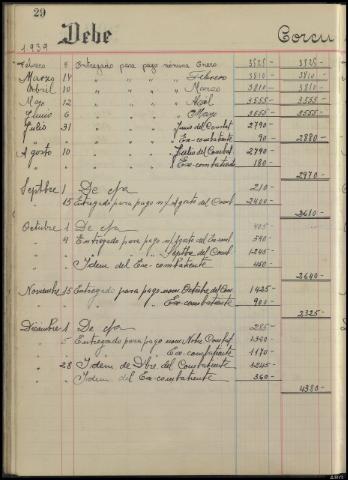 29
Debe
Corcu
1939
Febrero 8 Entregado para pago nómina Enero 3525- 3525-
Marzo 14 " " " " Febrero 3810- 3810-
Abril 10 " " " " Marzo 3810- 3810-
Mayo 12 " " " " Abril 3555- 3555-
Junio 6 " " " " Mayo 3555- 3555-
Julio 31 " " " Junio del Combat 2790-
" " " " Ex-combatiente 90- 2880-
Agosto 10 " " " " Julio del Combat 2790-
" " " " Ex-combatiente 180-
2970-
Septbre 1 De cpa 210-
" 15 Entregado para pago n/ Agosto del Comb 2400-
2610-
Octubre 1 De cpa 405-
" 4 Entregado para pago n/ Agosto del Ex-com 540-
" " " " " Septbre del Comb 1245-
" Idem del Ex-combatiente 450-
2640-
Noviembre 15 Entregado para pago nom Octubre del Com 1425-
" " " " Ex-combatiente 900-
2325-
Diciembre 1 De cpa 285-
" 5 Entregado para pago nom Nbre Combat
" " " " Ex-combatiente 1170-
" 28 Idem de Dbre del Combatiente 1245-
" " Idem del Ex-combatiente 360-
4380-